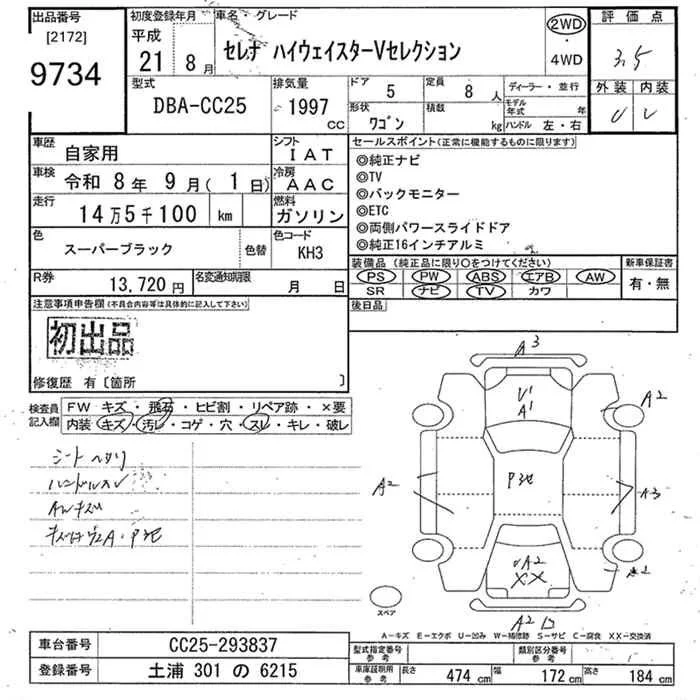 出品番号 初度登録年月 車名・グレード 評価点
[2172] 平成
9734 21 8月 セレナ ハイウェイスターVセレクション 2WD・4WD 3.5
型式 排気量 ドア 定員 ディーラー・並行 外装 内装
DBA-CC25 1997 CC 5 8人 モデル年式 年
形状 積載 ハンドル 左・右
ワゴン kg
車歴 自家用 シフト IAT セールスポイント(正常に機能するものに限ります)
車検 令和 8年 9月(1日) 冷房 AAC ◎純正ナビ
◎TV
走行 14万5千100 km 燃料 ガソリン ◎バックモニター
◎ETC
◎両側パワースライドドア
色 スーパーブラック 色替 色コード KH3 ◎純正16インチアルミ
装備品(純正品に限り○をつけてください) 新車保証書
R券 13,720円 名変通知期限 月 日 PS PW ABS エアB AW 有・無
SR ナビ TV カワ
注意事項申告欄(不具合内容等は具体的に記入して下さい) 後日品
初出品
修復歴 有〔箇所 〕
検査員記入欄 FW キズ・飛石・ヒビ割・リペア跡・×要
内装 キズ・汚レ・コゲ・穴・スレ・キレ・破レ
シートヘタリ
ハンドルスレ
AWキズ
A3
A1
A2
A2
A3
A2
XX
A2
スペア
A-キズ E-エクボ U-凹み W-補修跡 S-サビ C-腐食 XX-交換済
車台番号 CC25-293837 型式指定番号 参考 類別区分番号 参考
登録番号 土浦 301 の 6215 車庫証明用 参考 長さ 474 cm 幅 172 cm 高さ 184 cm